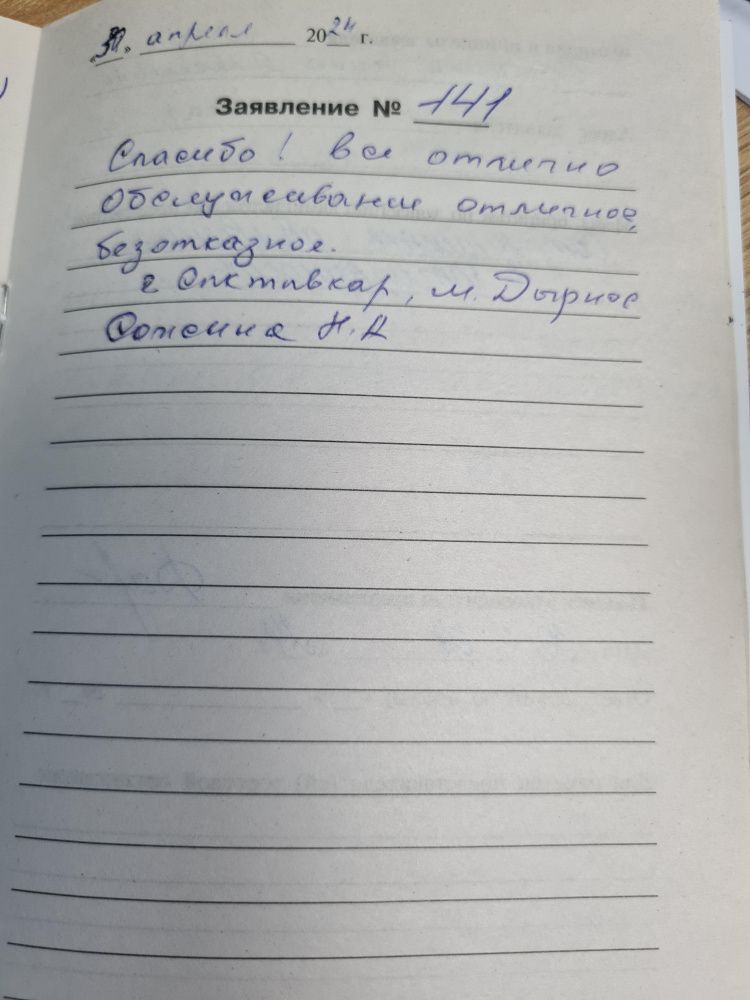 «30» апреля 2024 г.
Заявление № 141
Спасибо! все отлично
Обслуживание отличное,
безотказное.
г Сыктывкар, м. Дырнос
Н.А